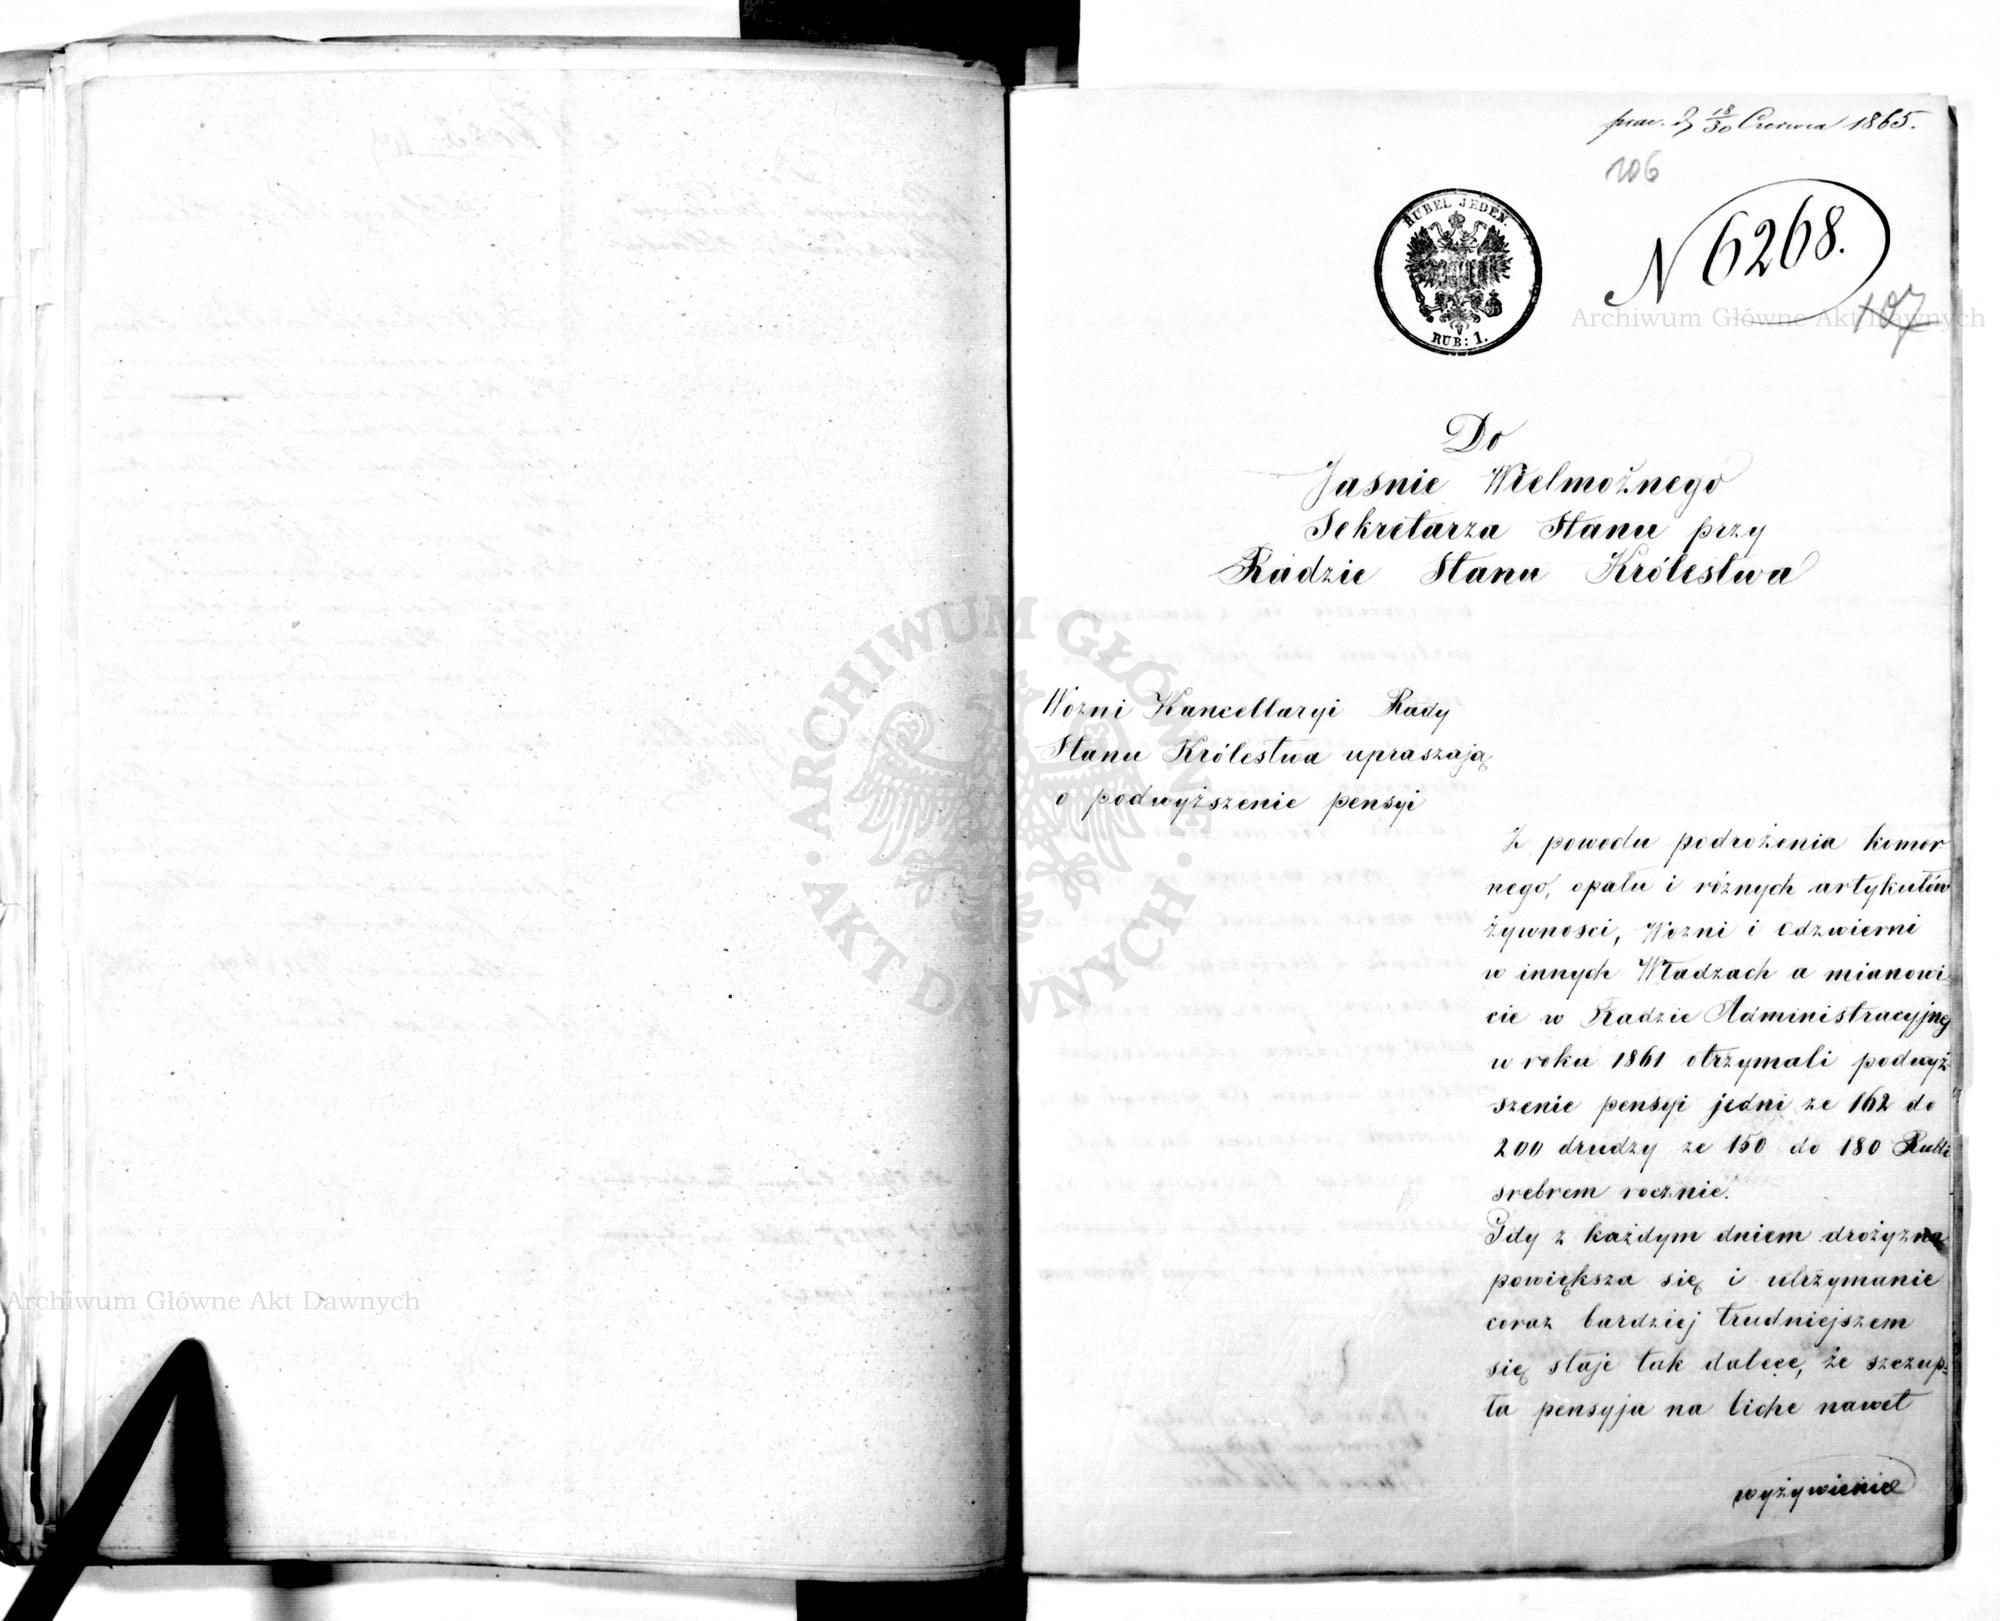 prae. d 18/30 Czerwca 1865.
106
RUBEL JEDEN.
RUB: 1.
N 6268.
107
Archiwum Główne Akt Dawnych
Do
Jasnie Wielmożnego
Sekretarza Stanu przy
Radzie Stanu Królestwa
ARCHIWUM GŁÓWNE · AKT DAWNYCH ·
Wozni Kancellaryi Rady
Stanu Królestwa upraszają
o podwyższenie pensyi
Z powodu podrożenia komor
nego, opału i różnych artykułów
żywnosci, Wozni i Odzwierni
w innych Władzach a mianowi-
cie w Radzie Administracyjnej
w roku 1861 otrzymali podwyż-
szenie pensyi jedni ze 162 do
200 drudzy ze 150 do 180 Rubli
srebrem rocznie.
Gdy z każdym dniem drożyzna
powiększa się i utrzymanie
coraz bardziej trudniejszem
się staje tak dalece, że szczup-
ła pensyja na liche nawet
wyżywienie
Archiwum Główne Akt Dawnych